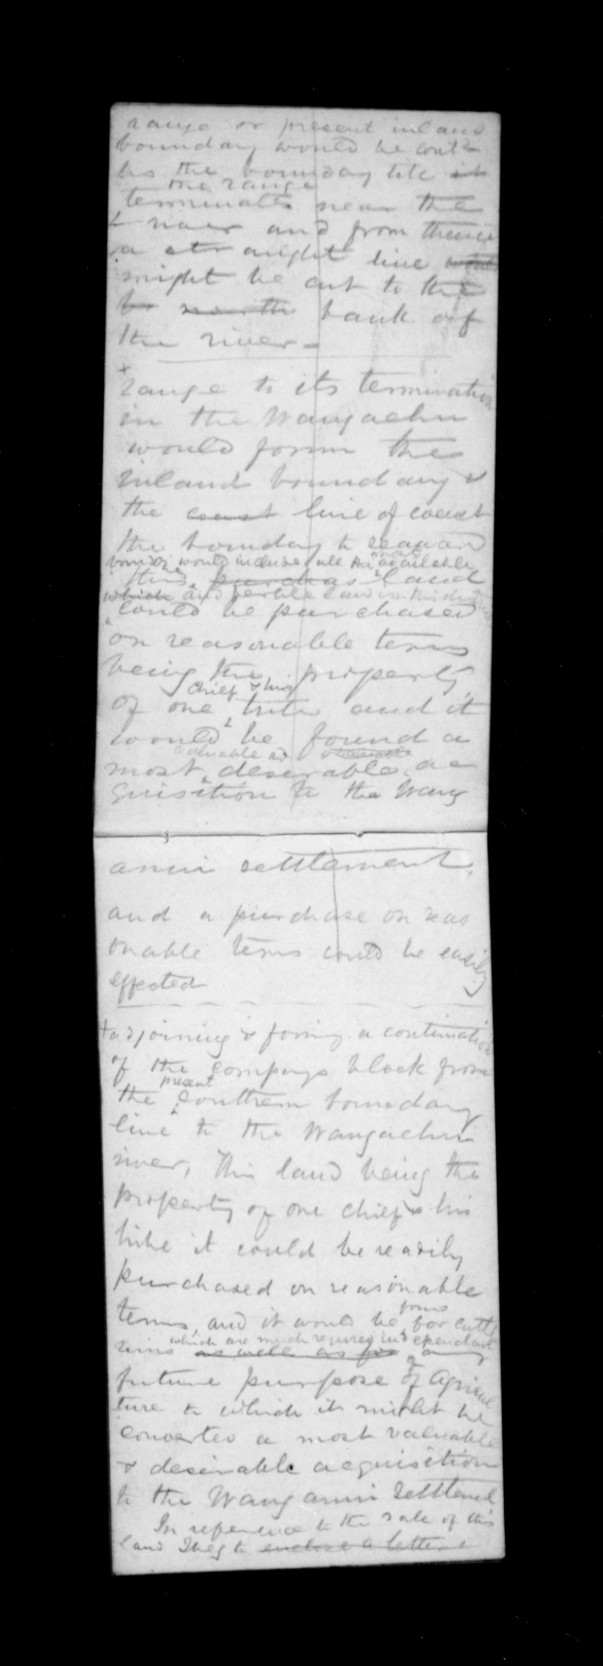 range or present inland
boundary would be cont
as the boundary till it
the range
terminates near the
river and from thence
a straight line
might be cut to the
north bank of
the river -
range to its termination
in the Wangaehu
would form the
inland boundary &
the coast line of coast
the boundary to seaward
would include all the most available
this purchase land
which and fertile land in this
could be purchased
on reasonable terms
being the property
chief & his
of one tribe and it
would be found a
valuable and valuable
most desirable ac
quisition to the Wang
anui settlement.
and a purchase on reas
onable terms could be easily
effected
adjoining & forming a continuation
of the Companys block from
present
the southern boundary
line to the Wangaehu
river, This land being the
property of one chief & his
tribe it could be readily
purchased on reasonable
terms, and it would be for cattle
runs which are much required independant
as well as for any
future purpose of Agricul
ture to which it might be
converted a most valuable
& desirable acquisition
to the Wanganui Settlement
In reference to the sale of this
land I beg to enclose a letter